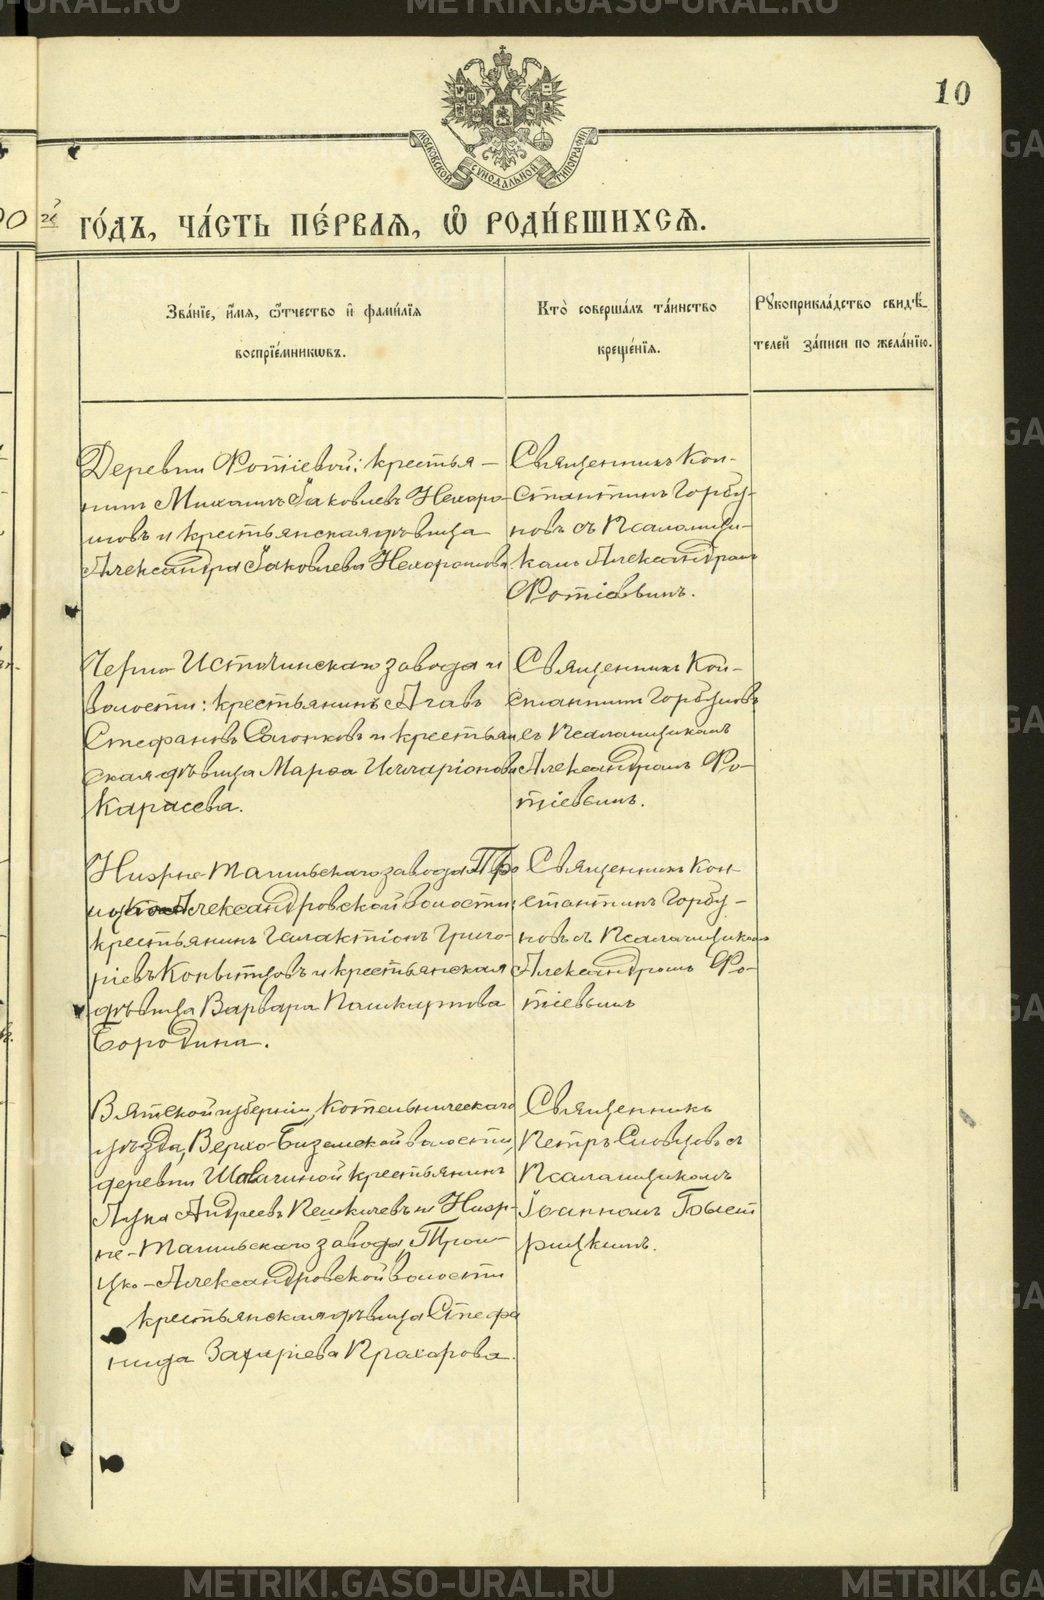 METRIKI.GASO-URAL.RU
10
МОСКОВСКОЙ СѴНОДАЛЬНОЙ ТИПОГРАФІИ
го́дъ, ча́сть пе́рваѧ, ѡ҆ роди́вшихсѧ.
Зва́нїе, и҆́мѧ, ѻ҆́тчество и҆ фами́лїѧ
воспрїе́мникѡвъ.
Кто̀ соверша́лъ та́инство
креще́нїѧ.
Рꙋкоприкла́дство свидѣ́-
телей за́писи по жела́нїю.
Деревни Фотіевой: крестья-
нинъ Михаилъ Іаковлевъ Нехоро-
шовъ и крестьянская дѣвица
Александра Іаковлева Нехорошова
Священникъ Кон-
стантинъ Горбу-
новъ съ Псаломщи-
комъ Александромъ
Фотіевымъ.
Черно-Источинскаго завода и
волости: крестьянинъ
Стефановъ и крестьян
ская дѣвица Марѳа Илларіонова
Карасева.
Священникъ Кон-
стантинъ Горбуновъ
съ Псаломщикомъ
Александромъ Фо-
тіевымъ.
Нижне-Тагильскаго завода Тро
ицко Александровской волости:
крестьянинъ Галактіонъ Григо-
ріевъ Копытовъ и крестьянская
дѣвица Варвара
Бородина.
Священникъ Кон-
стантинъ Горбу-
новъ съ Псаломщикомъ
Александромъ Фо-
тіевымъ
Вятской губерніи, Котельническаго
уѣзда, Верхо- волости,
деревни крестьянинъ
Лука Андреевъ и Ниж-
не-Тагильскаго завода, Трои-
цко-Александровской волости
крестьянская дѣвица Стефа
нида Захаріева Прахорова.
Священникъ
Петръ Словцовъ съ
Псаломщикомъ
Іоанномъ